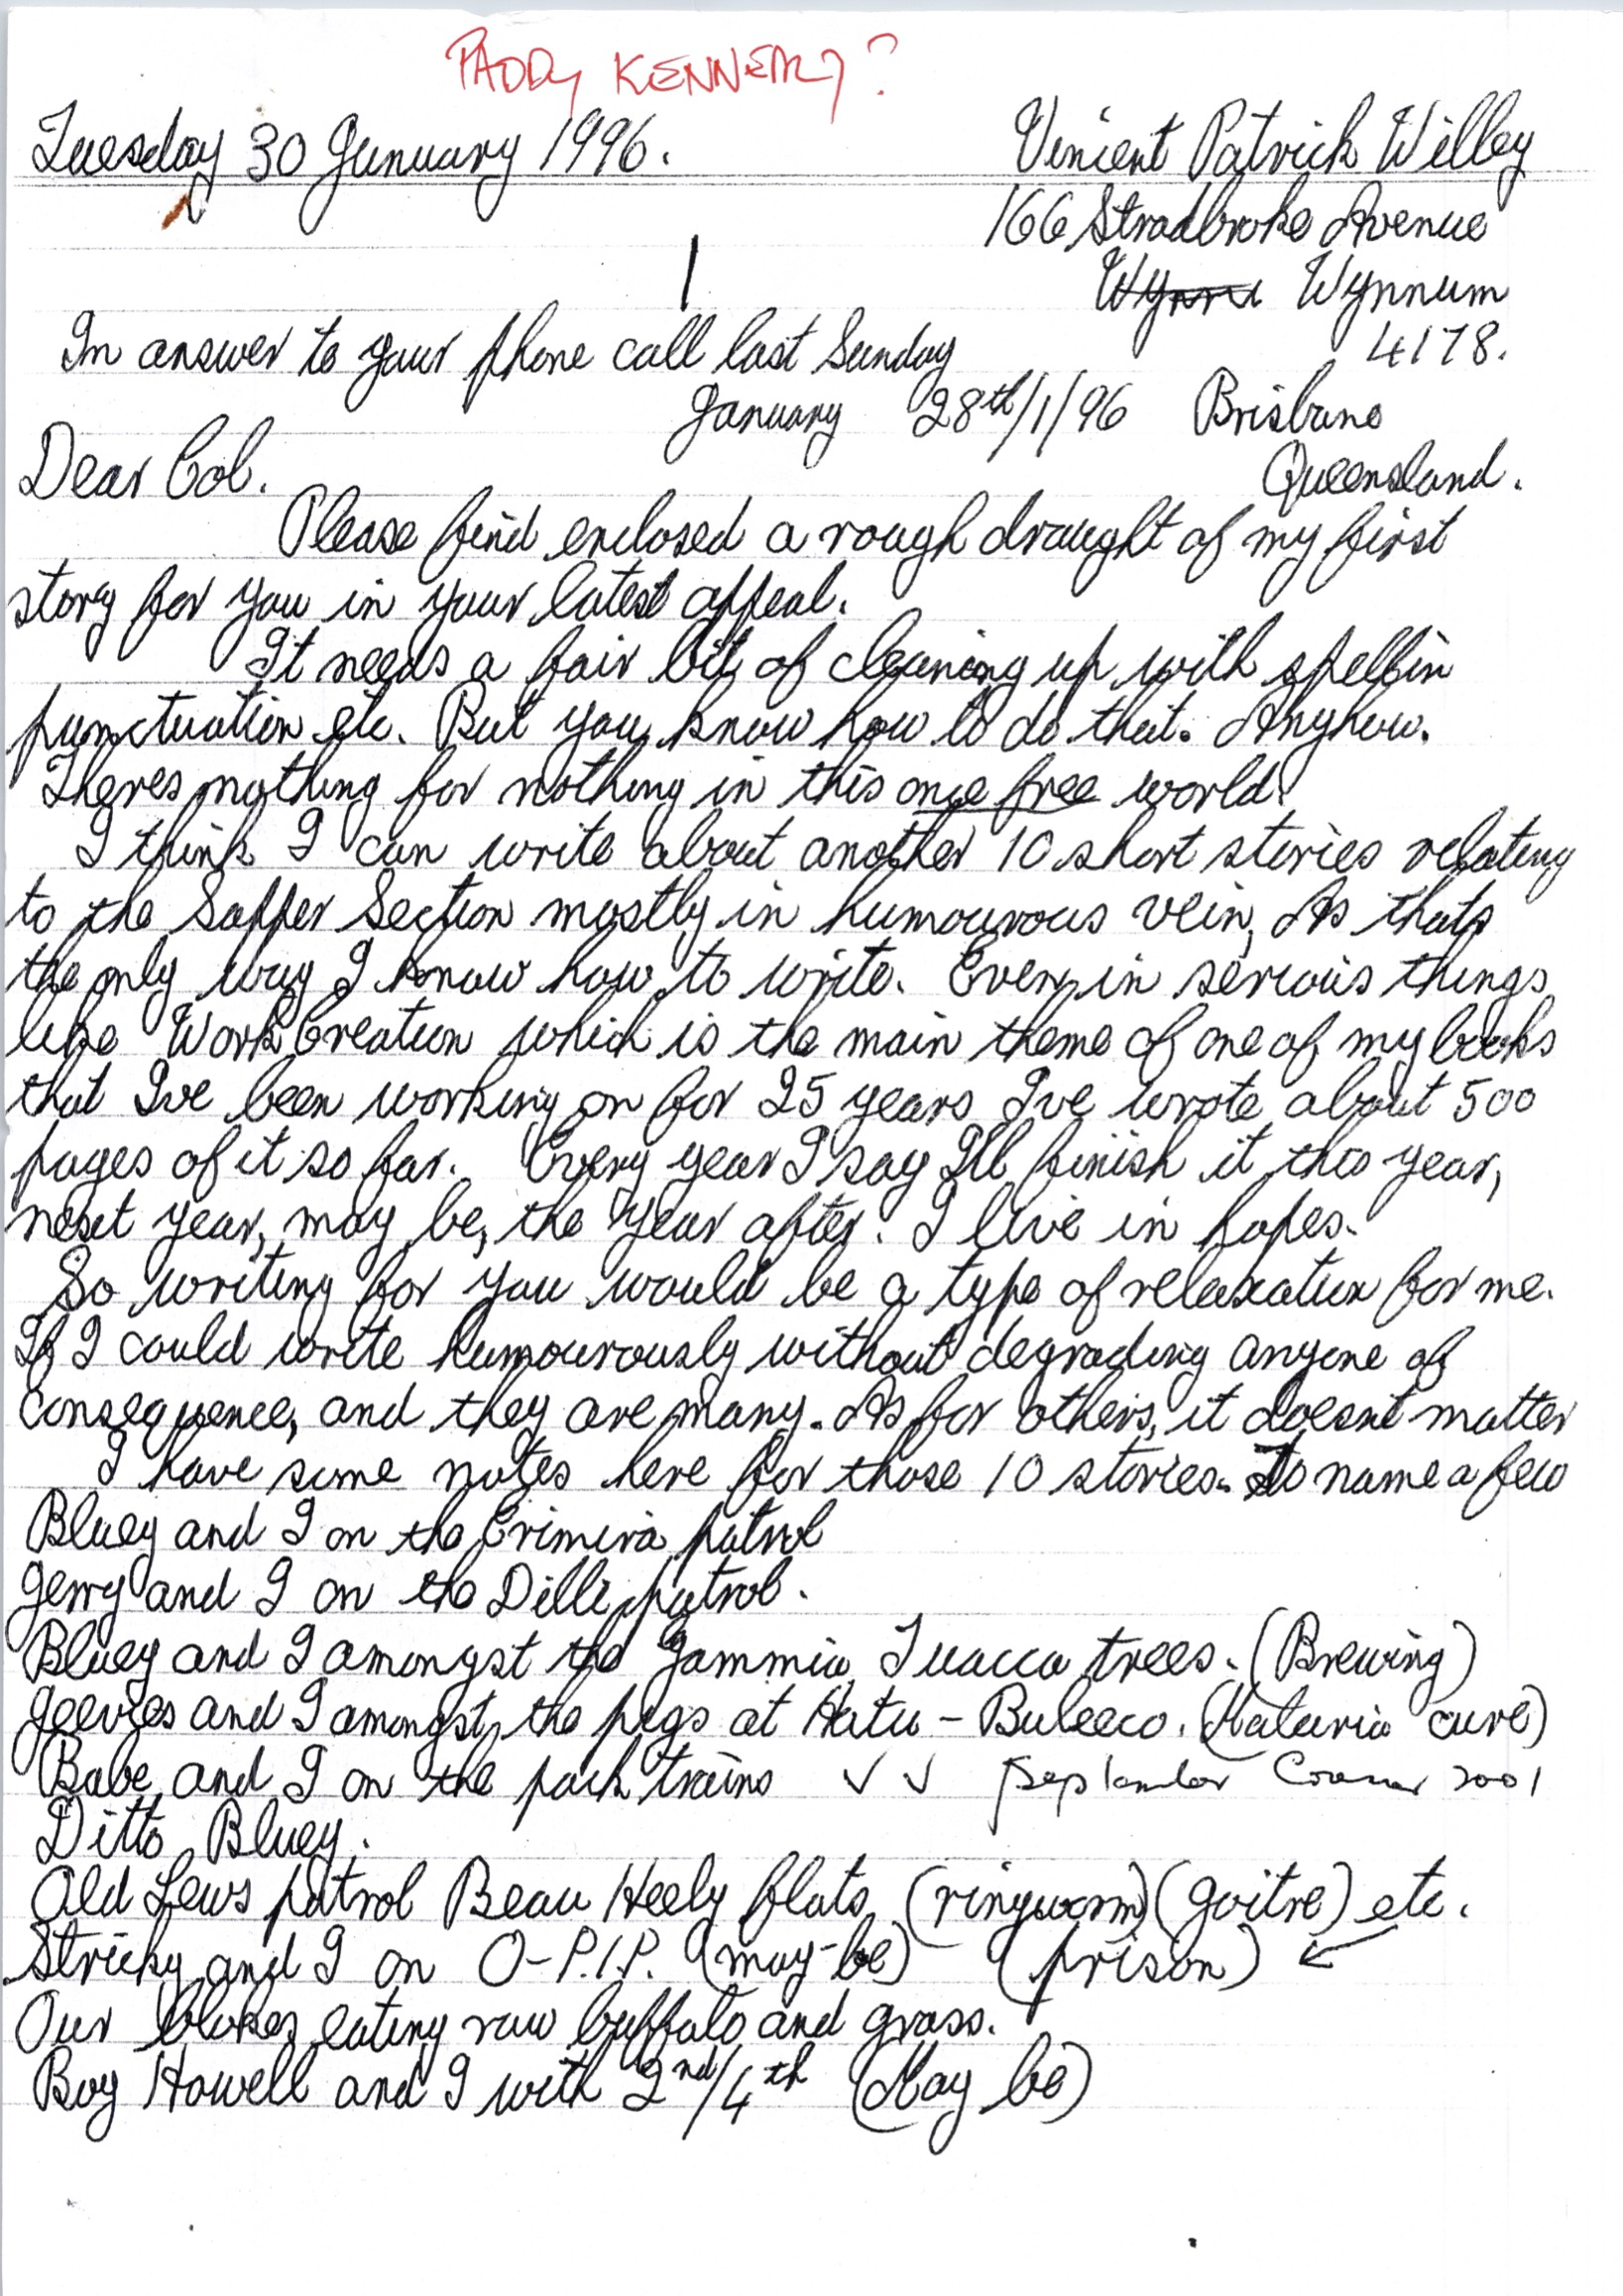 PADDY KENNEALY?
Tuesday 30 January 1996.
Vincent Patrick Willey
166 Stradbroke Avenue
Wynnum
4178.
1
In answer to your phone call last Sunday
January 28th/1/96 Brisbane
Queensland.
Dear Col.
Please find enclosed a rough draught of my first
story for you in your latest appeal.
It needs a fair bit of cleaning up with spellin
punctuation etc. But you know how to do that. Anyhow.
Theres nothing for nothing in this once free world.
I think I can write about another 10 short stories relating
to the Sapper Section mostly in humourous vein, As thats
the only way I know how to write. Even in serious things
like Work Creation which is the main theme of one of my books
that I've been working on for 25 years I've wrote about 500
pages of it so far. Every year I say I'll finish it this year,
next year, may be, the year after. I live in hopes.
So writing for you would be a type of relaxation for me.
If I could write humourously without degrading anyone of
consequence, and they are many. As for others, it doesnt matter
I have some notes here for those 10 stories. To name a few
Bluey and I on the patrol
Gerry and I on the Dilli patrol.
Bluey and I amongst the trees. (Brewing)
Geevies and I amongst the pigs at Hatu - (cure)
Babe and I on the pack trains ✓ ✓ September Courier 2001
Ditto Bluey.
Old Lews patrol Beau Heely flats (ringworm) (goitre) etc.
Stricky and I on O-P.I.P. (may-be) (prison) ↙
Our blokes eating raw buffalo and grass.
Boy Howell and I with 2nd/4th (May be)